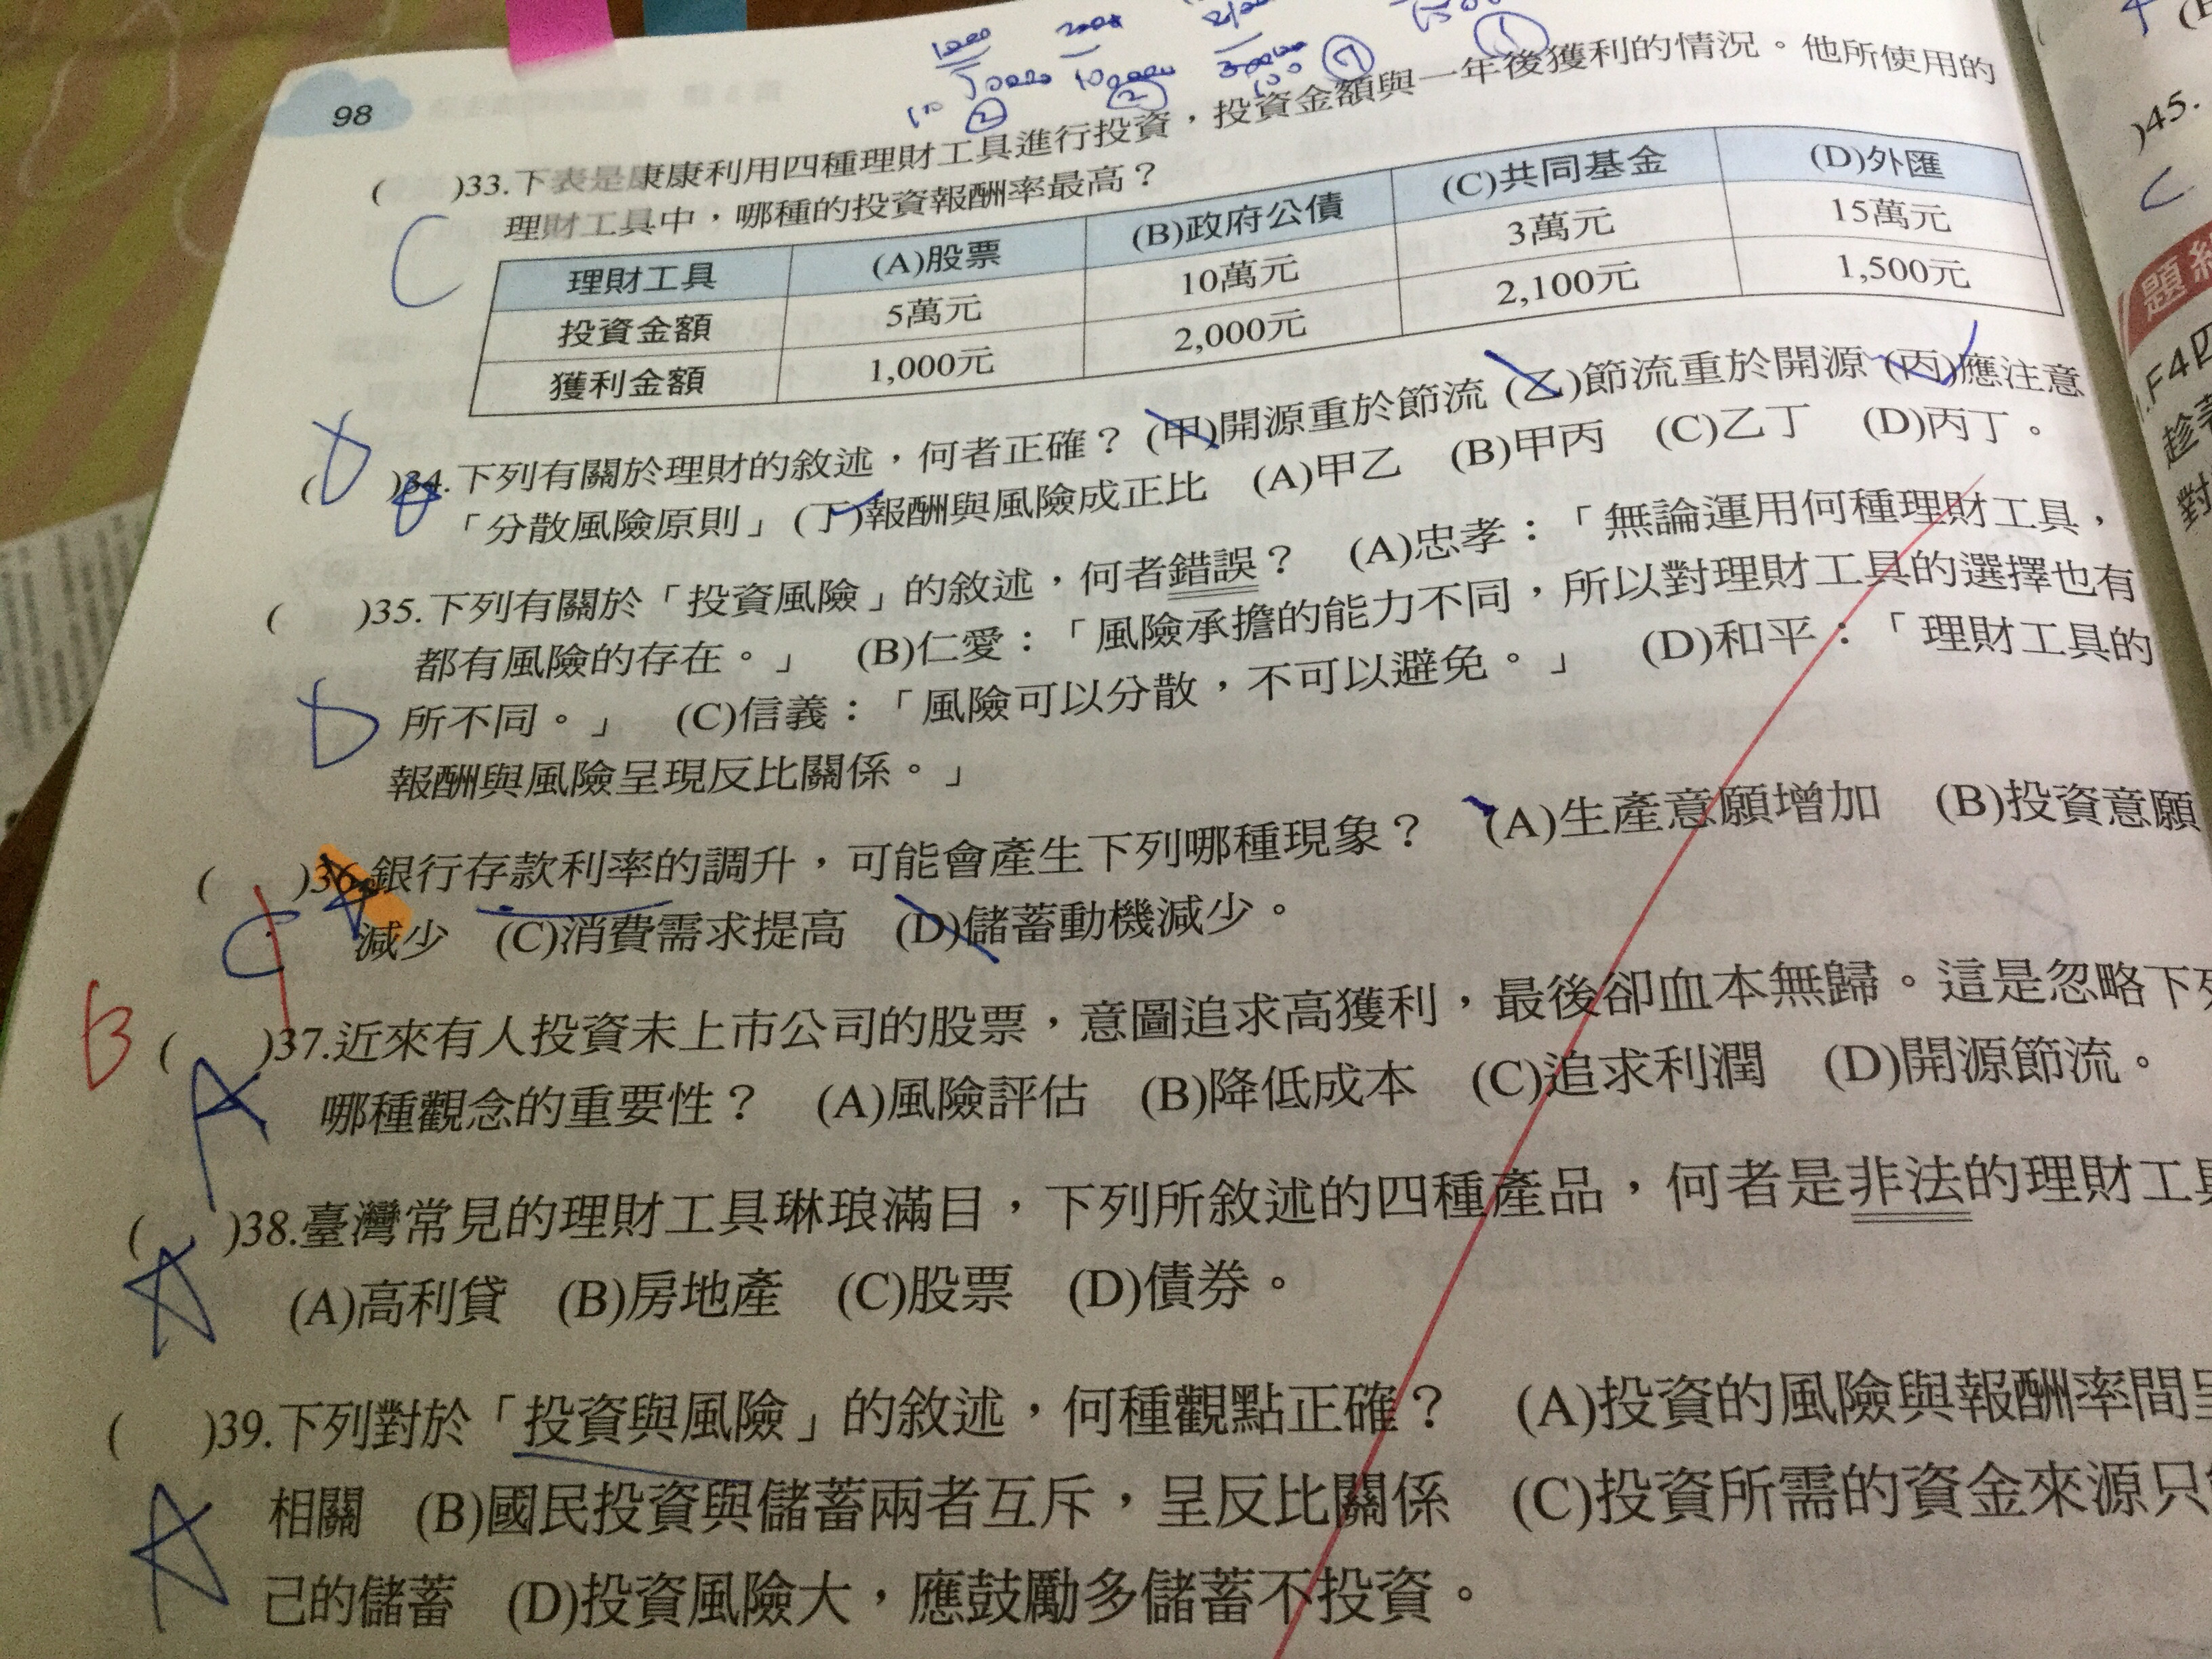 98
1000 2000
50000 100000 300
2 2 7
( )33.下表是康康利用四種理財工具進行投資，投資金額與一年後獲利的情況。他所使用的
C 理財工具中，哪種的投資報酬率最高？
理財工具 (A)股票 (B)政府公債 (C)共同基金 (D)外匯
投資金額 5萬元 10萬元 3萬元 15萬元
獲利金額 1,000元 2,000元 2,100元 1,500元
( D )34.下列有關於理財的敘述，何者正確？ (甲)開源重於節流 (乙)節流重於開源 (丙)應注意
「分散風險原則」 (丁)報酬與風險成正比 (A)甲乙 (B)甲丙 (C)乙丁 (D)丙丁。
( )35.下列有關於「投資風險」的敘述，何者錯誤？ (A)忠孝：「無論運用何種理財工具，
都有風險的存在。」 (B)仁愛：「風險承擔的能力不同，所以對理財工具的選擇也有
D 所不同。」 (C)信義：「風險可以分散，不可以避免。」 (D)和平：「理財工具的
報酬與風險呈現反比關係。」
( )36.銀行存款利率的調升，可能會產生下列哪種現象？ (A)生產意願增加 (B)投資意願
C 減少 (C)消費需求提高 (D)儲蓄動機減少。
B ( )37.近來有人投資未上市公司的股票，意圖追求高獲利，最後卻血本無歸。這是忽略下列
A 哪種觀念的重要性？ (A)風險評估 (B)降低成本 (C)追求利潤 (D)開源節流。
( )38.臺灣常見的理財工具琳琅滿目，下列所敘述的四種產品，何者是非法的理財工具
A (A)高利貸 (B)房地產 (C)股票 (D)債券。
( )39.下列對於「投資與風險」的敘述，何種觀點正確？ (A)投資的風險與報酬率間呈
A 相關 (B)國民投資與儲蓄兩者互斥，呈反比關係 (C)投資所需的資金來源只
己的儲蓄 (D)投資風險大，應鼓勵多儲蓄不投資。
)45.
C
題
F4四
趁
對